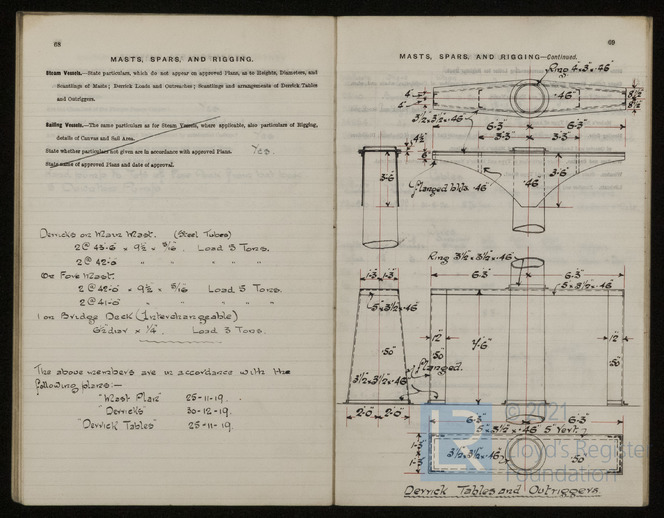 68
MASTS, SPARS, AND RIGGING.
Steam Vessels.—State particulars, which do not appear on approved Plans, as to Heights, Diameters, and
Scantlings of Masts; Derrick Loads and Outreaches; Scantlings and arrangements of Derrick Tables
and Outriggers.
Sailing Vessels.—The same particulars as for Steam Vessels, where applicable, also particulars of Rigging,
details of Canvas and Sail Area.
State whether particulars not given are in accordance with approved Plans. Yes.
State name of approved Plans and date of approval.
Derricks on Main Mast. (Steel Tubes)
2 @ 43·6 × 9½ × 5/16 Load 5 Tons.
2 @ 42·6 " " " "
On Fore Mast.
2 @ 42·0 × 9½ × 5/16 Load 5 Tons.
2 @ 41·0 " " " "
1 on Bridge Deck (Interchangeable)
6½ diar × ¼ Load 3 Tons.
The above members are in accordance with the
following plans:—
"Mast Plan" 25-11-19.
"Derricks" 30-12-19.
"Derrick Tables" 25-11-19.
69
MASTS, SPARS, AND RIGGING—Continued.
Ring 4"×3"×·46"
4"
4"
·46"
8½"
8½"
3½×3½×·46"
6·3" 6·3"
3·3 3·3
4½"
6"
3·6
3·6"
·46"
flanged bkts ·46"
Ring 3½"×3½"×·46"
1·3 1·3
6·3" 6·3"
5×3½×·46
5×3½×·46
12"
·50"
7·6"
12"
·50"
·50"
flanged.
3½×3½×·46
2·0 2·0
6·3" 6·3"
5"×3½"×·46" 5" Vert.
1·3"
1·3"
3½×3½×·46
·50"
Derrick Tables and Outriggers.
© 2021
Lloyd's Register
Foundation